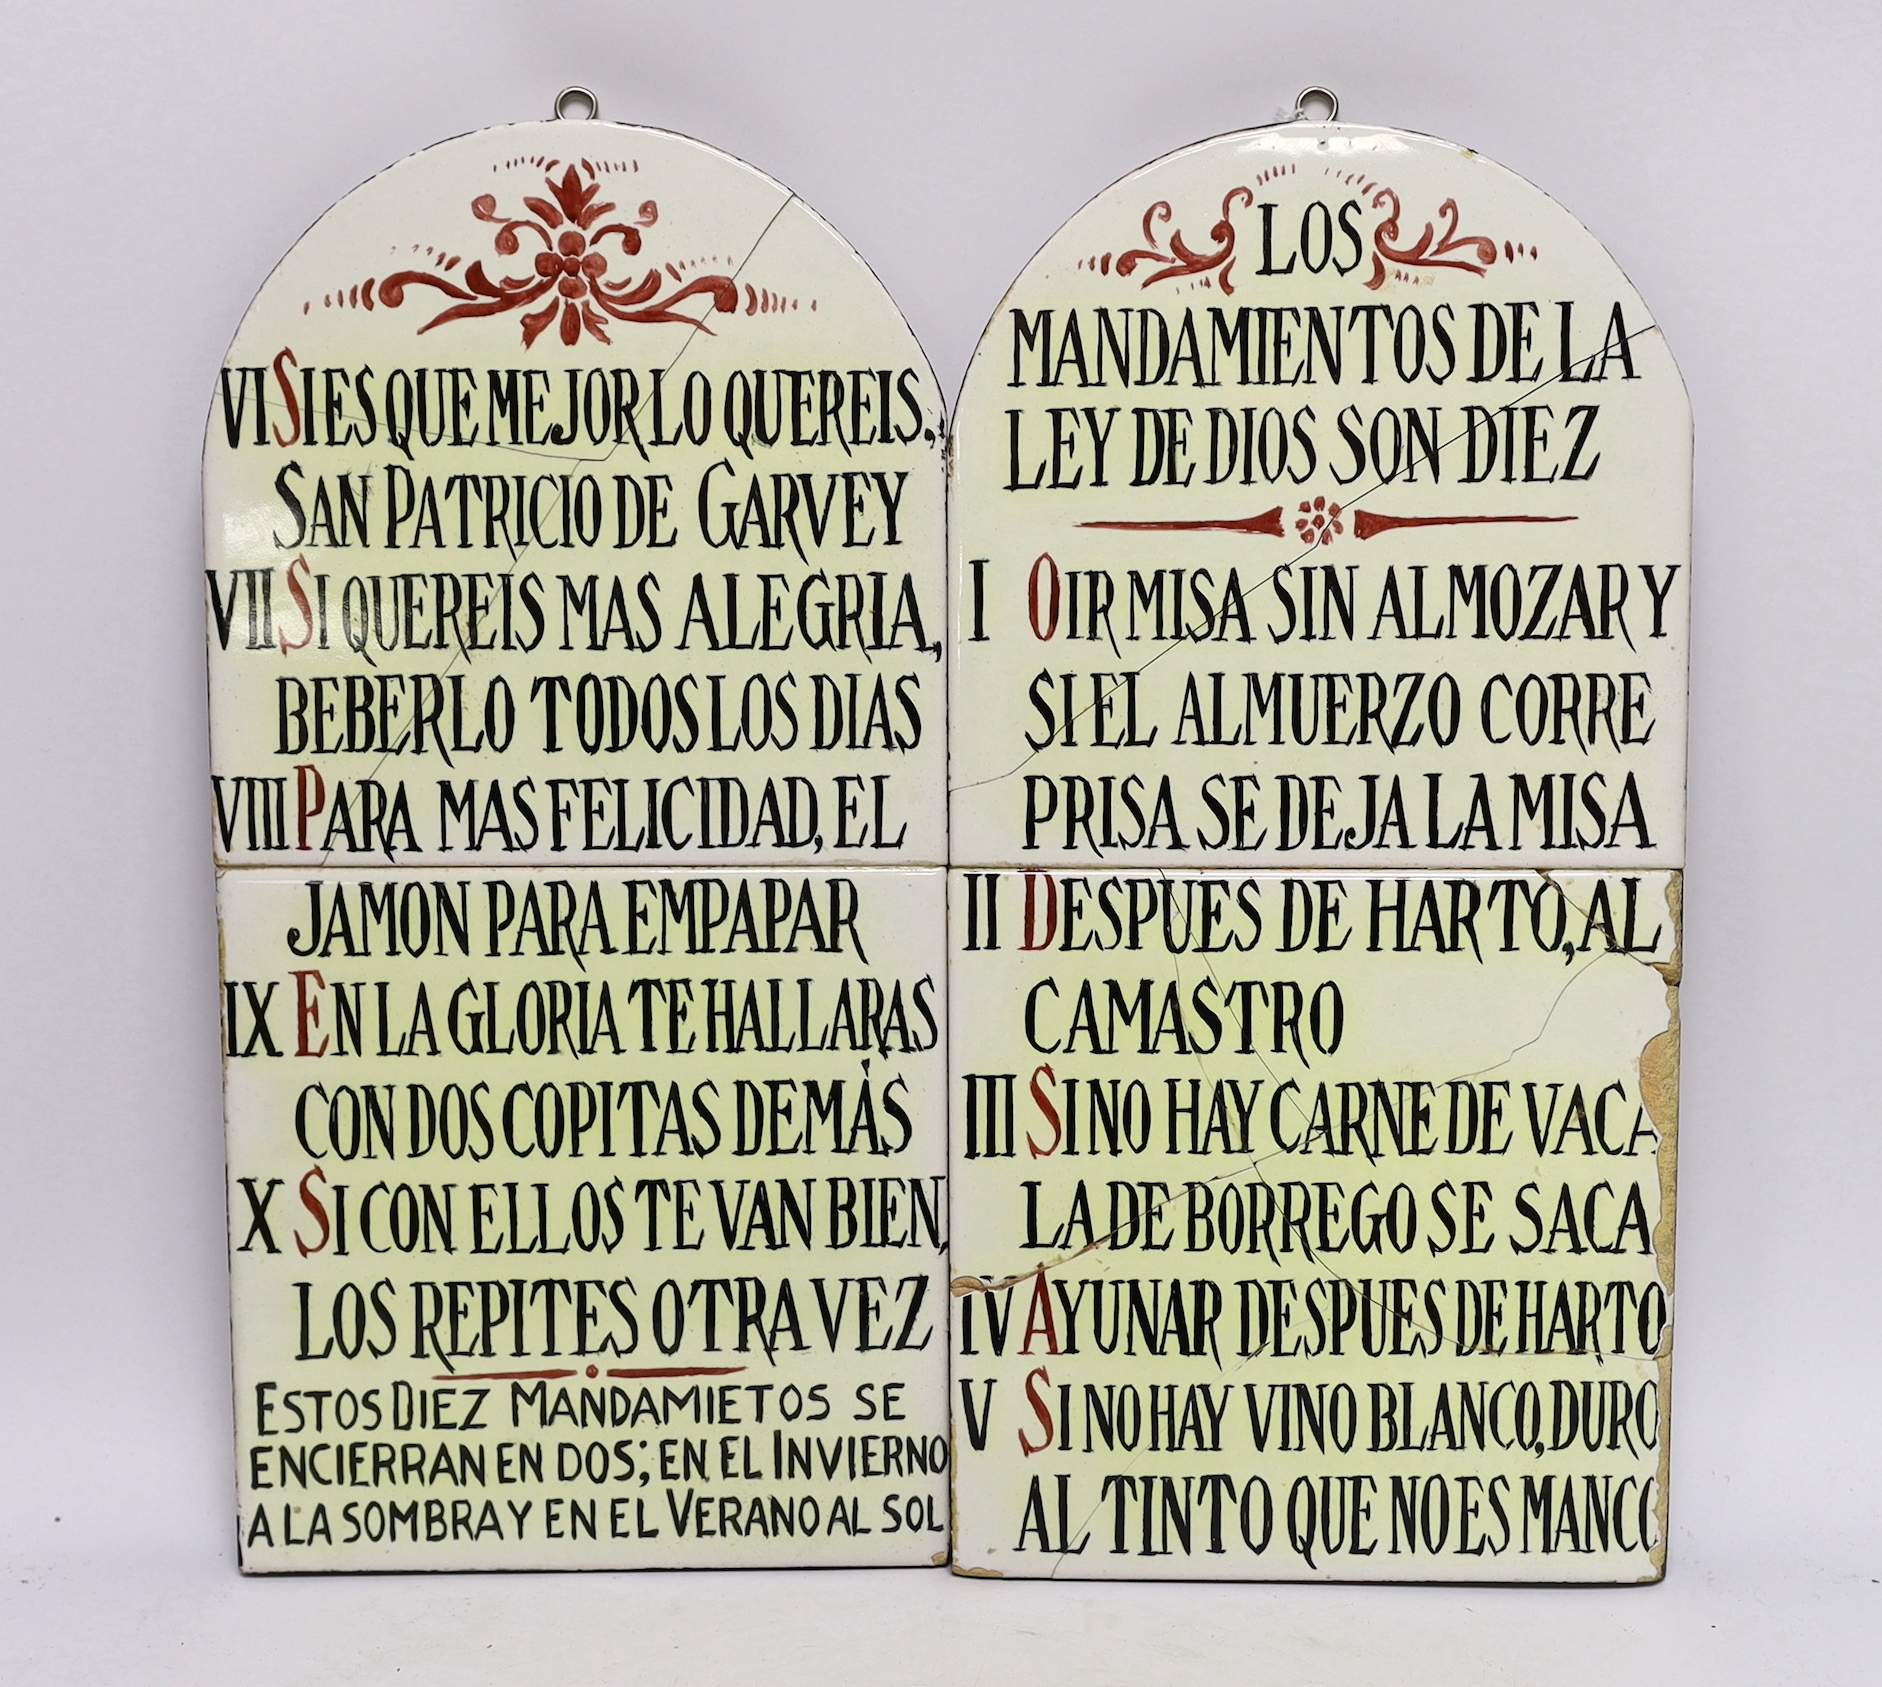 LOS
MANDAMIENTOS DE LA
LEY DE DIOS SON DIEZ
I OIR MISA SIN ALMOZAR Y
SI EL ALMUERZO CORRE
PRISA SE DEJA LA MISA
II DESPUES DE HARTO, AL
CAMASTRO
III SI NO HAY CARNE DE VACA
LA DE BORREGO SE SACA
IV AYUNAR DESPUES DE HARTO
V SI NO HAY VINO BLANCO, DURO
AL TINTO QUE NO ES MANCO
VI SI ES QUE MEJOR LO QUEREIS,
SAN PATRICIO DE GARVEY
VII SI QUEREIS MAS ALEGRIA,
BEBERLO TODOS LOS DIAS
VIII PARA MAS FELICIDAD, EL
JAMON PARA EMPAPAR
IX EN LA GLORIA TE HALLARAS
CON DOS COPITAS DE MÁS
X SI CON ELLOS TE VAN BIEN,
LOS REPITES OTRA VEZ
ESTOS DIEZ MANDAMIETOS SE
ENCIERRAN EN DOS; EN EL INVIERNO
A LA SOMBRA Y EN EL VERANO AL SOL